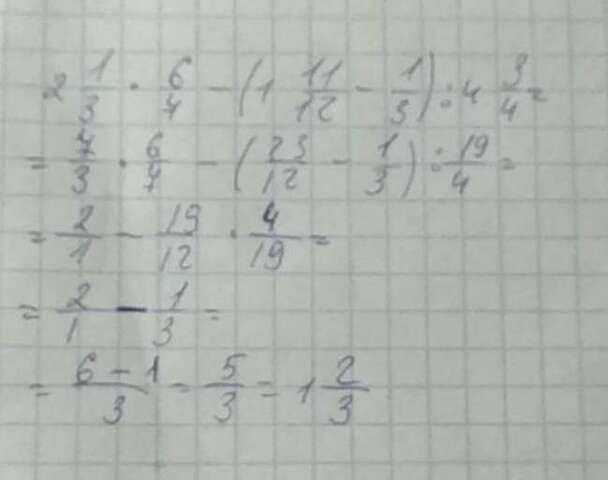 2 1/3 · 6/7 - (1 11/12 - 1/3) : 4 3/4 =
= 7/3 · 6/7 - (23/12 - 1/3) : 19/4 =
= 2/1 - 19/12 · 4/19 =
= 2/1 - 1/3 =
= (6 - 1)/3 = 5/3 = 1 2/3